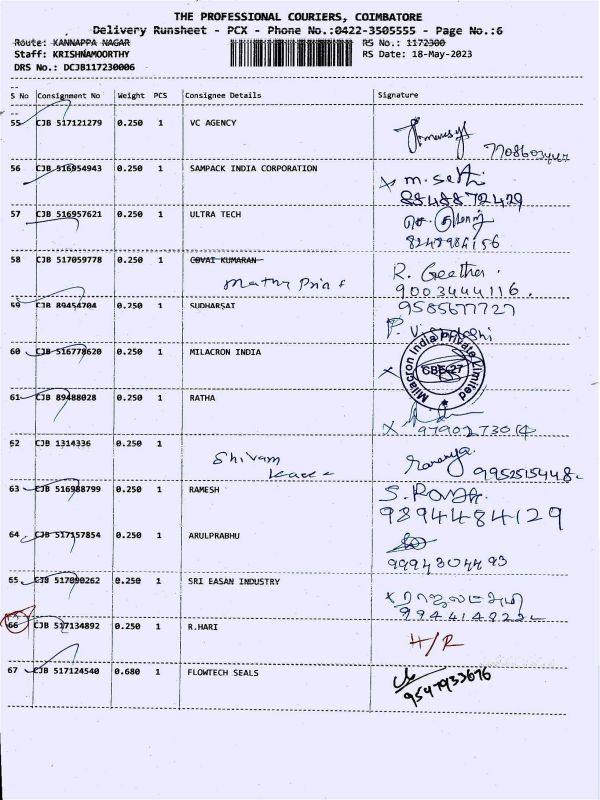 THE PROFESSIONAL COURIERS, COIMBATORE
Delivery Runsheet - PCX - Phone No.:0422-3505555 - Page No.:6
Route: KANNAPPA NAGAR RS No.: 1172300
Staff: KRISHNAMOORTHY RS Date: 18-May-2023
DRS No.: DCJB117230006
S No Consignment No Weight PCS Consignee Details Signature
55 CJB 517121279 0.250 1 VC AGENCY
56 CJB 516954943 0.250 1 SAMPACK INDIA CORPORATION
m. sethi
8848872429
57 CJB 516957621 0.250 1 ULTRA TECH
8248986156
58 CJB 517059778 0.250 1 COVAI KUMARAN R. Geetha.
9003444116.
59 CJB 89454704 0.250 1 SUDHARSAI 9585677727
60 CJB 516778620 0.250 1 MILACRON INDIA
Milacron India Private Limited
CBE-27
61 CJB 89488028 0.250 1 RATHA
62 CJB 1314336 0.250 1
Shivam
9952515448
63 CJB 516988799 0.250 1 RAMESH
9894484129
64 CJB 517157854 0.250 1 ARULPRABHU
9994804493
65 CJB 517090262 0.250 1 SRI EASAN INDUSTRY
66 CJB 517134892 0.250 1 R.HARI H/R
67 CJB 517124540 0.680 1 FLOWTECH SEALS
9547933676